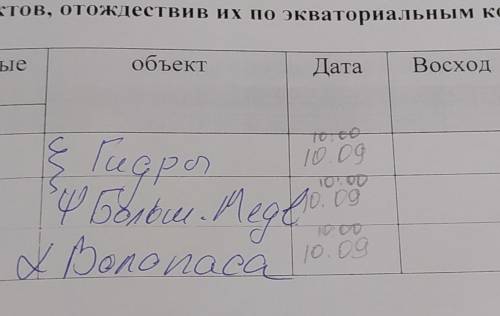 ктов, отождествив их по экваториальным ко
ые объект Дата Восход
ξ Гидры 10.00 10.09
ψ Больш. Медв. 10.00 10.09
α Волопаса 10.00 10.09